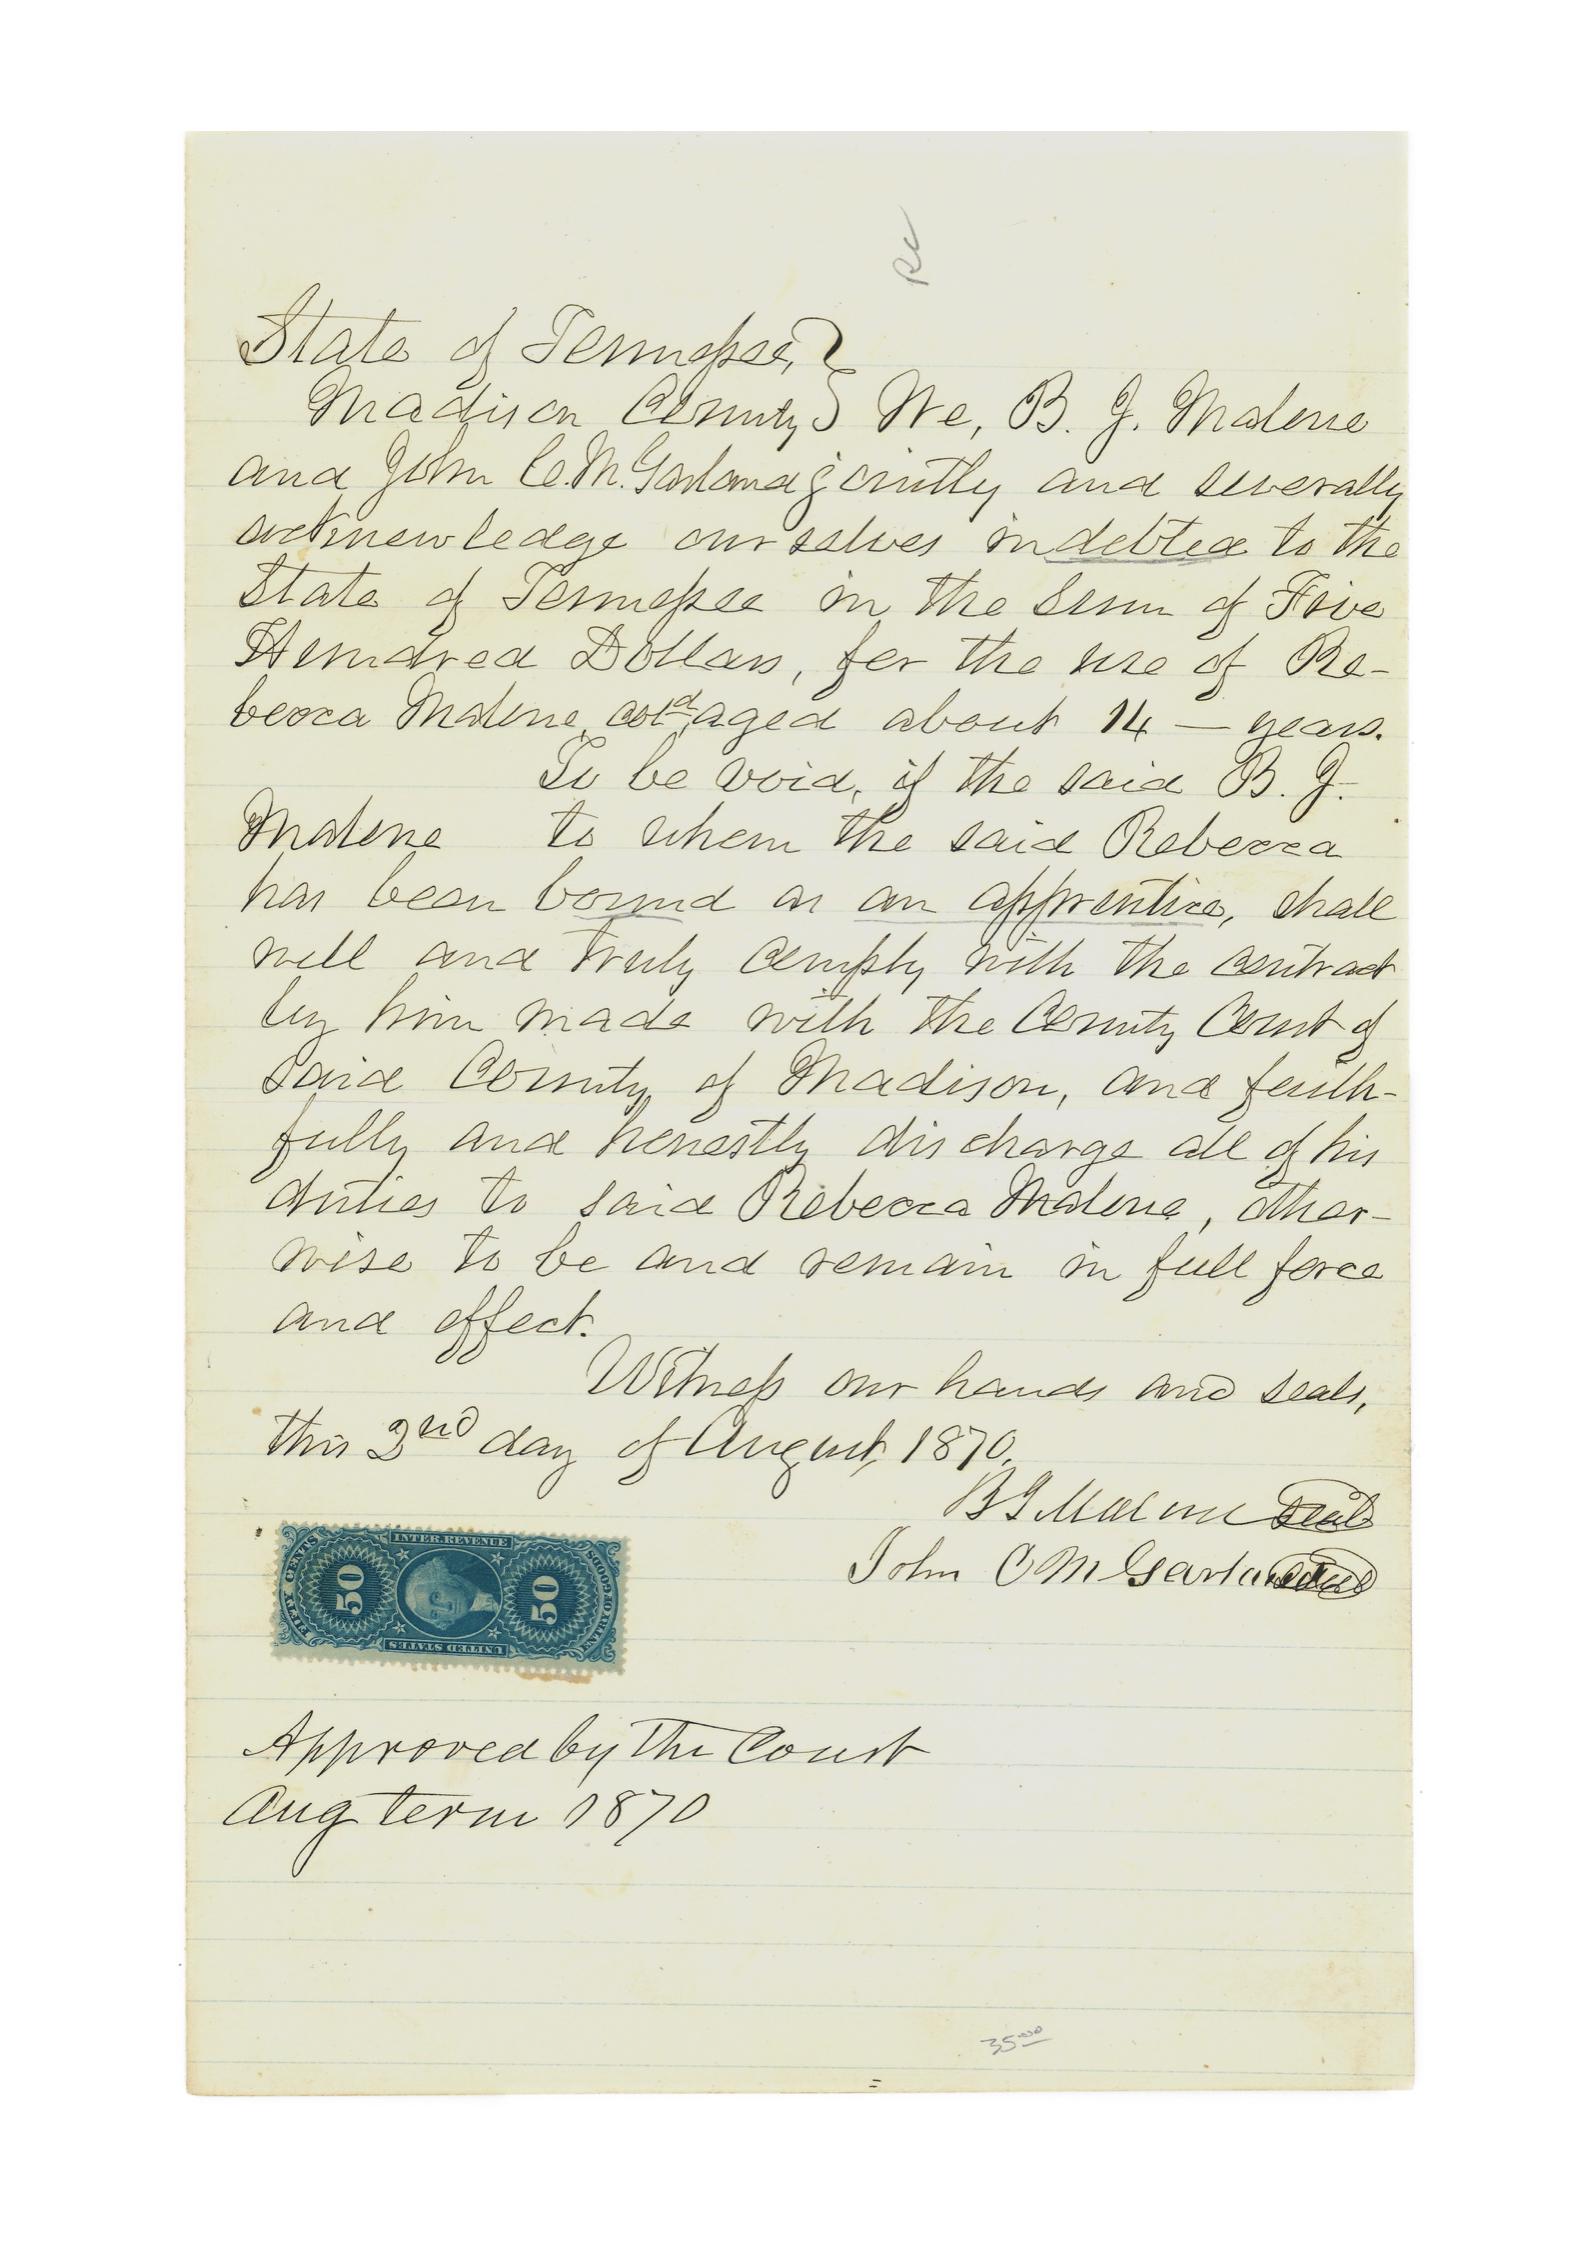 Re
State of Tennessee,
Madison County We, B. J. Malone
and John C. M. Garland jointly and severally
acknowledge our selves indebted to the
State of Tennessee in the sum of Five
Hundred Dollars, for the use of Re-
becca Malone, cold, aged about 14 — years.
To be void, if the said B. J.
Malone to whom the said Rebecca
has been bound as an apprentice, shall
well and truly comply with the contract
by him made with the County Court of
said County of Madison, and faith-
fully and honestly discharge all of his
duties to said Rebecca Malone, other-
wise to be and remain in full force
and effect.
Witness our hands and seals,
this 2nd day of August, 1870.
B J Malone Seal
John C M Garland Seal
INTER. REVENUE
FIFTY CENTS
50 50
UNITED STATES
Approved by the Court
Aug term 1870
35.00